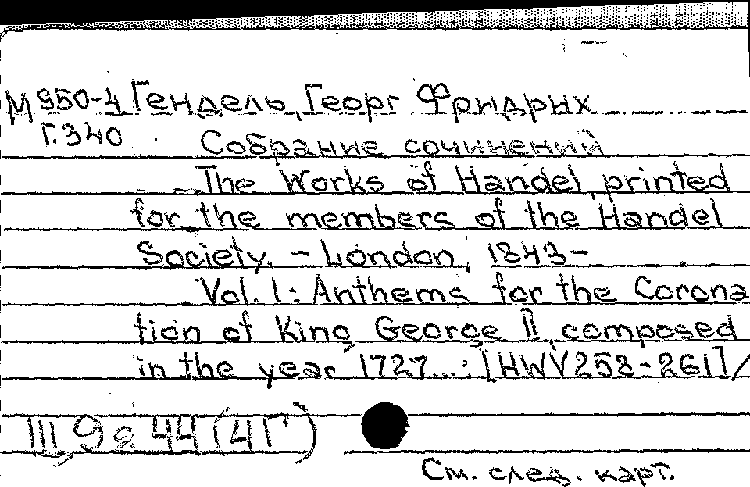 М950-4 Гендель, Георг Фридрих
Г.340 Собрание сочинений
The Works of Handel, printed
for the members of the Handel
Society. - London, 1843-
Vol. 1: Anthems for the Corona
tion of King George II, composed
in the year 1727...: [HWV258-261]/
44 (4Г)
См. след. карт.